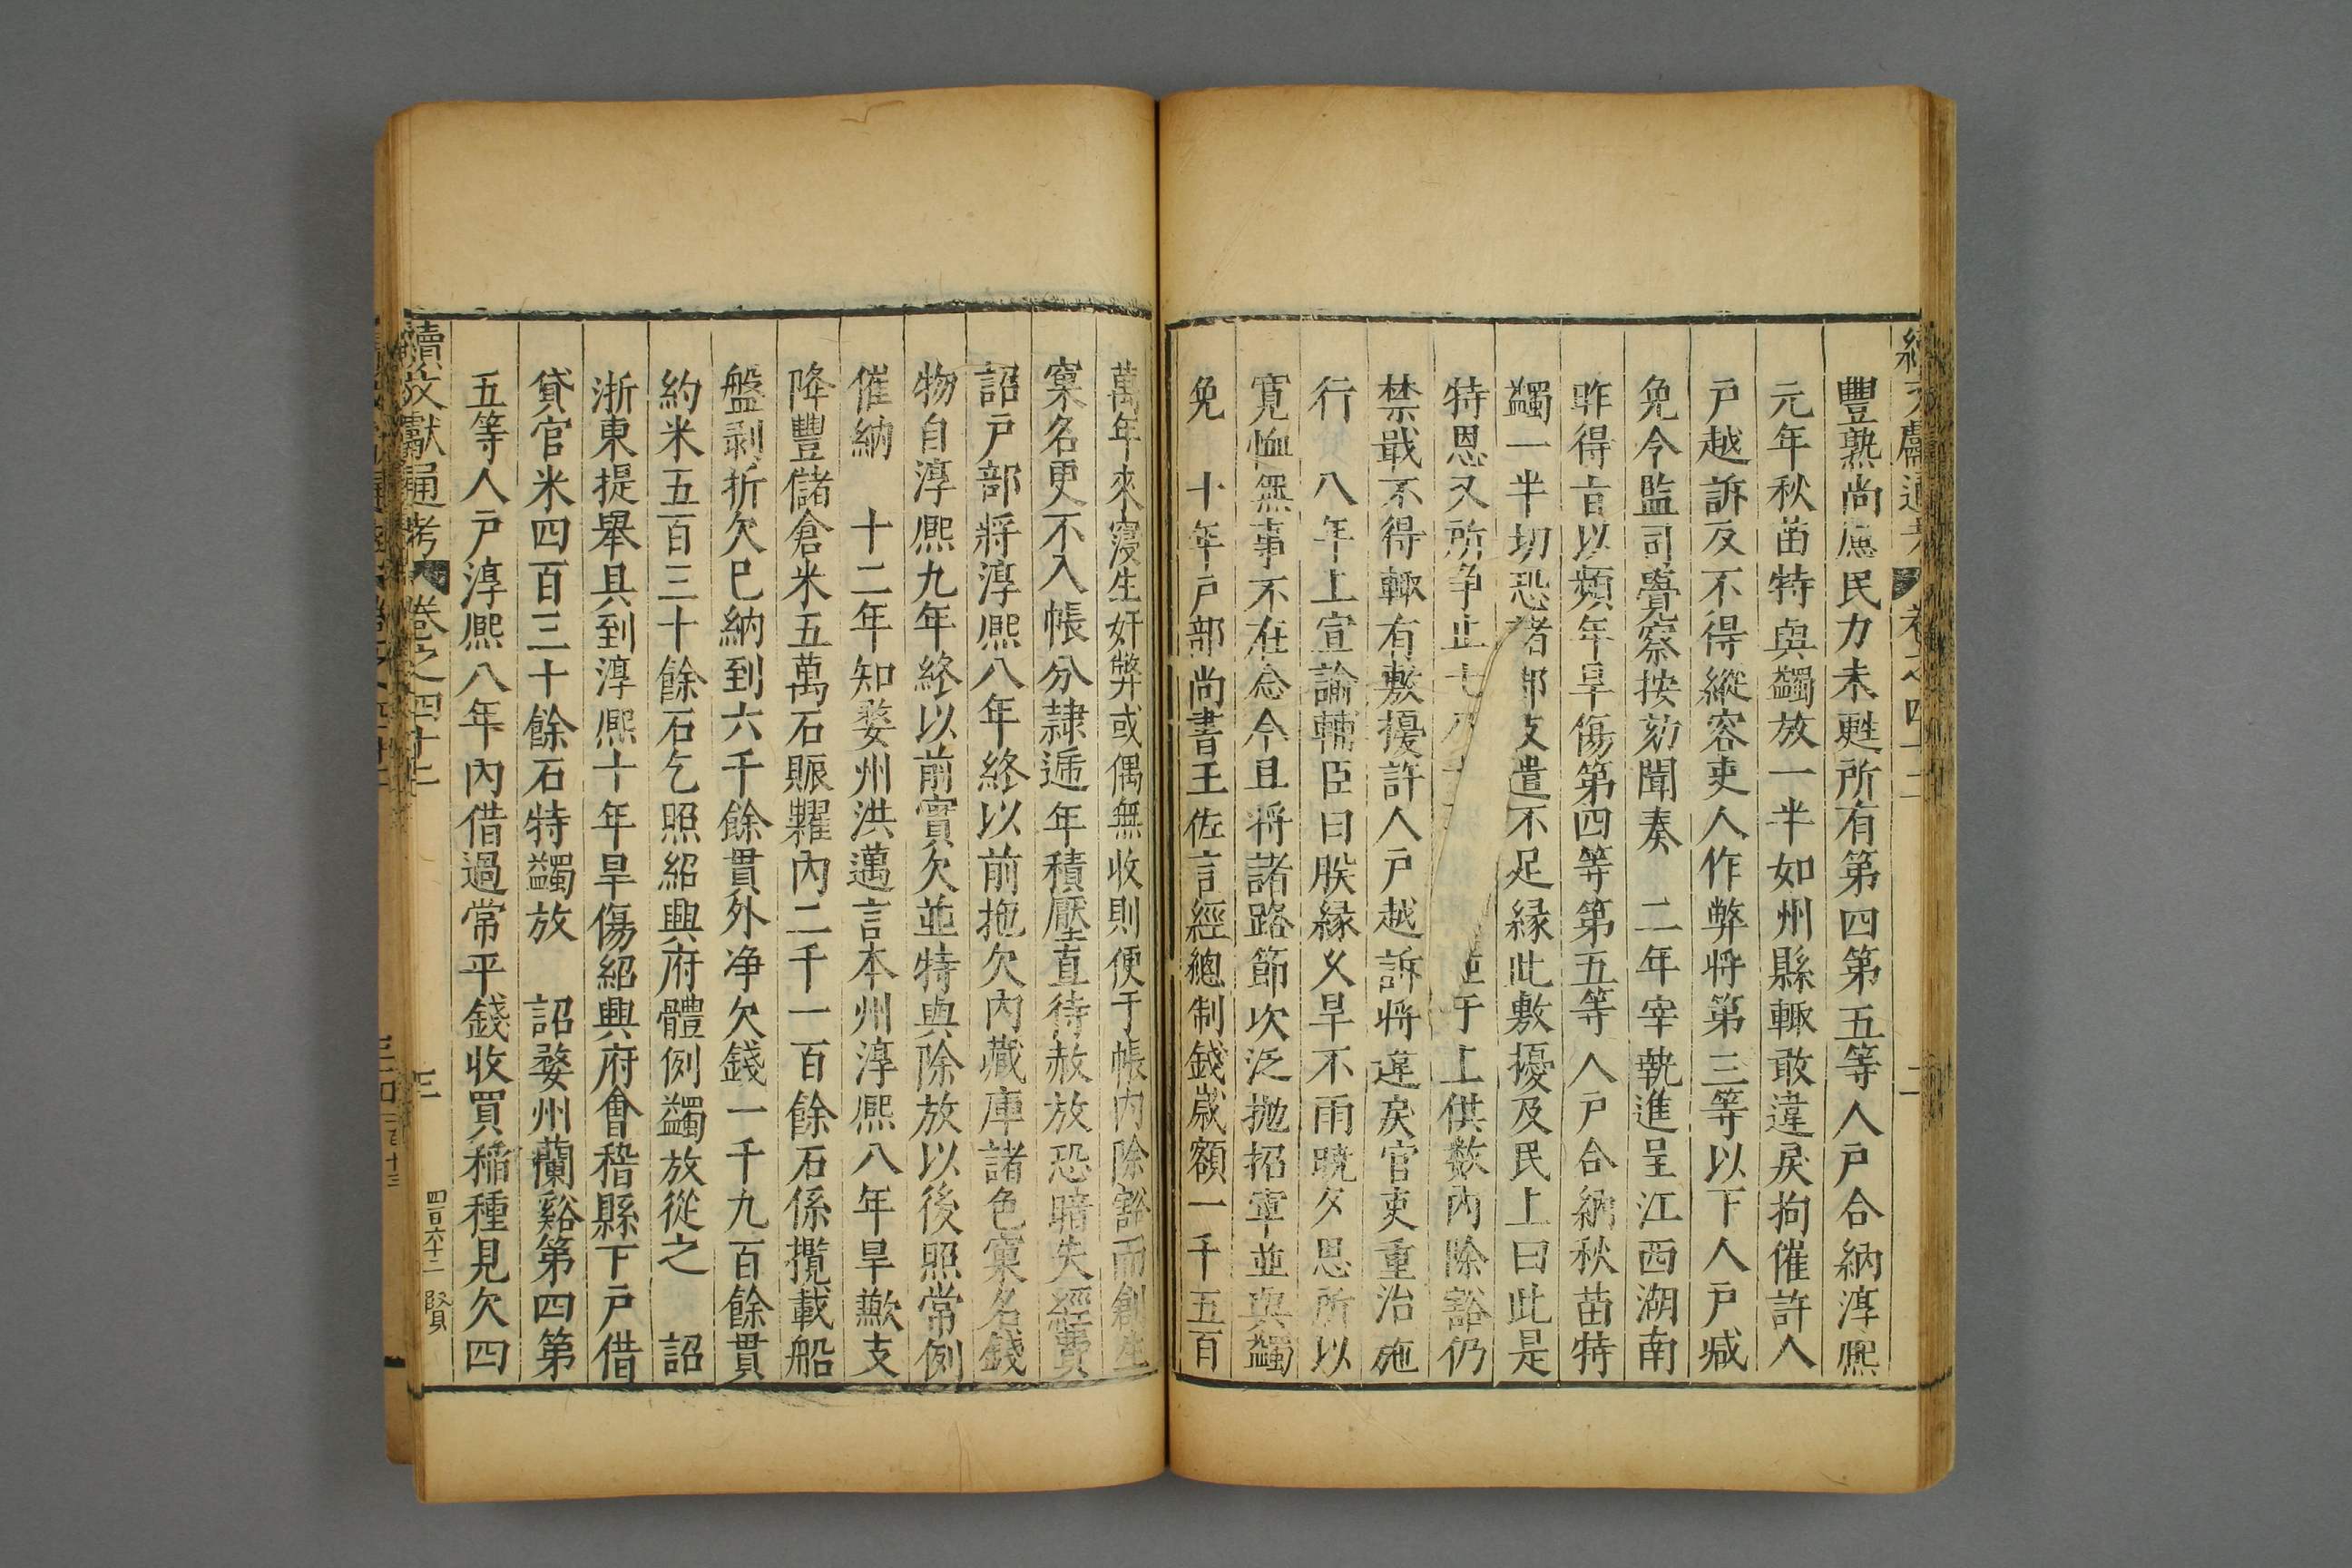 豐熟尚慮民力未甦所有第四第五等人戸合納淳熙
元年秋苗特與蠲放一半如州縣輒敢違戾拘催許人
戸越訴反不得縱容吏人作弊將第三等以下人戸减
免令監司覺察按劾聞奏　二年宰執進呈江西湖南
昨得旨以頻年旱傷第四等第五等人戸合納秋苗特
蠲一半切恐諸郡支遣不足縁此敷擾及民上曰此是
特恩又所争止七八　並于上供数內除豁仍
禁戢不得輒有敷擾許人戸越訴將違戾官吏重治施
行　八年上宣諭輔臣曰朕縁乆旱不雨曉夕思所以
寛恤無事不在念今且將諸路節次泛抛招軍並與蠲
免　十年戸部尚書王佐言經總制錢歲額一千五百
萬年來寖生奸弊或偶無收則便于帳內除豁而創生
窠名更不入帳分隷遞年積壓直待赦放恐暗失經費
詔戸部將淳熙八年終以前拖欠內藏庫諸色窠名錢
物自淳熙九年終以前實欠並特與除放以後照常例
催納　十二年知婺州洪邁言本州淳熙八年旱歉支
降豐儲倉米五萬石賑糶內二千一百餘石係攬載船
盤剥折欠已納到六千餘貫外净欠錢一千九百餘貫
約米五百三十餘石乞照紹興府體例蠲放從之　詔
浙東提舉具到淳熙十年旱傷紹興府會稽縣下戸借
貸官米四百三十餘石特蠲放　詔婺州蘭谿第四第
五等人戸淳熙八年內借過常平錢收買稲種見欠四
續文獻通考　卷之四十二　三　四百六十二　賢